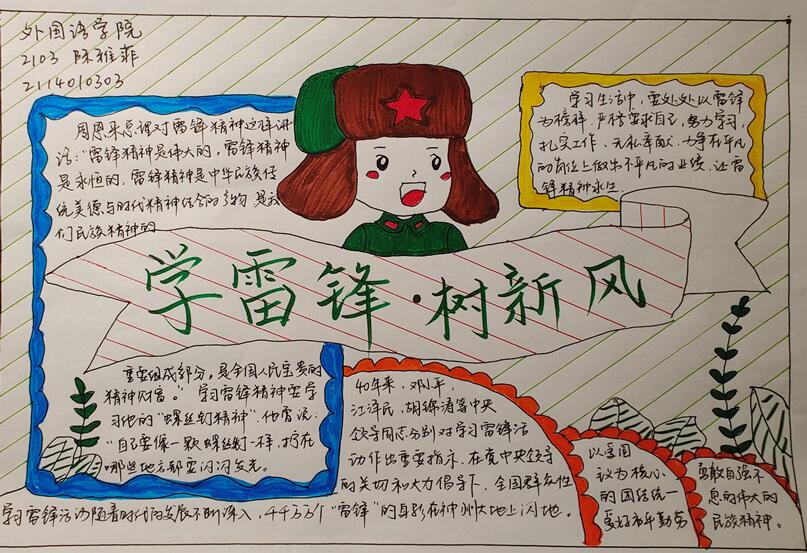 外国语学院
2103 陈雅菲
2114010303
周恩来总理对雷锋精神这样讲
话："雷锋精神是伟大的，雷锋精神
是永恒的，雷锋精神是中华民族传
统美德与时代精神结合的产物 是我
们民族精神的
学习生活中，要处处以雷锋
为榜样，严格要求自己，努力学习，
扎实工作，无私奉献，力争在平凡
的岗位上做出不平凡的业绩，让雷
锋精神永生.
学雷锋·树新风
重要组成部分，是全国人民宝贵的
精神财富。" 学习雷锋精神要学
习他的"螺丝钉精神"，他常说：
"自己要像一颗螺丝钉一样，拧在
哪些地方都要闪闪发光。
40年来，邓小平，
江泽民，胡锦涛等中央
领导同志分别对学习雷锋活
动作出重要指示. 在党中央领导
的关切和大力倡导下，全国群众性
学习雷锋活动随着时代的发展不断深入，44万万个"雷锋"的身影在神州大地上闪地。
以爱国
议为核心
的团结统一
爱好和平勤劳
勇敢自强不
息的伟大的
民族精神。